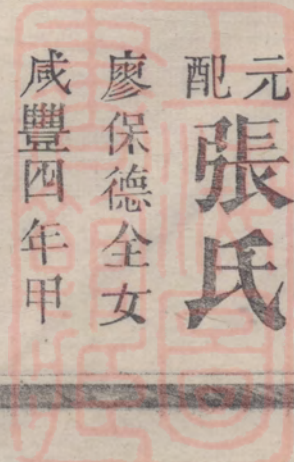 元配張氏
廖保德全女
咸豐四年甲